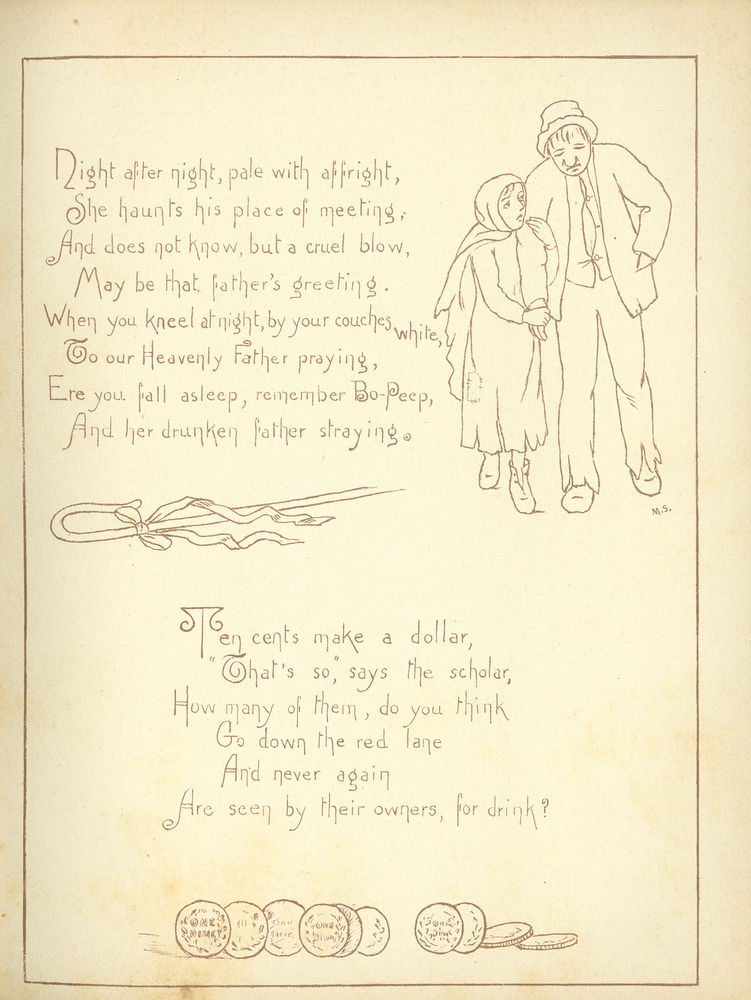 Night after night, pale with affright,
She haunts his place of meeting,
And does not know, but a cruel blow,
May be that father's greeting.
When you kneel at night, by your couches white,
To our Heavenly Father praying,
Ere you fall asleep, remember Bo-Peep,
And her drunken father straying.
M.S.
Ten cents make a dollar,
"That's so," says the scholar,
How many of them, do you think
Go down the red lane
And never again
Are seen by their owners, for drink?
ONE DIME
ONE DIME
ONE DIME